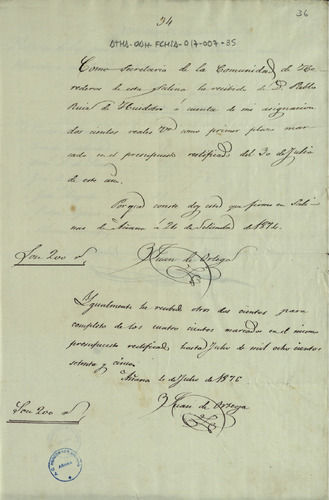 34
36
ATHA-DAH-FCHIA-017-007-35
Como Secretario de la Comunidad de He-
rederos de esta Salina he recibido de D. Pablo
Ruiz de Huidobro á cuenta de mi asignacion
dos cientos reales Vn como primer plazo mar-
cado en el presupuesto rectificado del 30 de Julio
de este año.
Porque conste doy este que firmo en Sali-
nas de Añana á 24 de Setiembre de 1874.
Son 200 rs
Juan de Ortega
Igualmente he recibido otros dos cientos para
completo de los cuatro cientos marcados en el mismo
presupuesto rectificado, hasta Julio de mil ocho cientos
setenta y cinco.
Añana 4 de Julio de 1876
Son 200 rs
Juan de Ortega